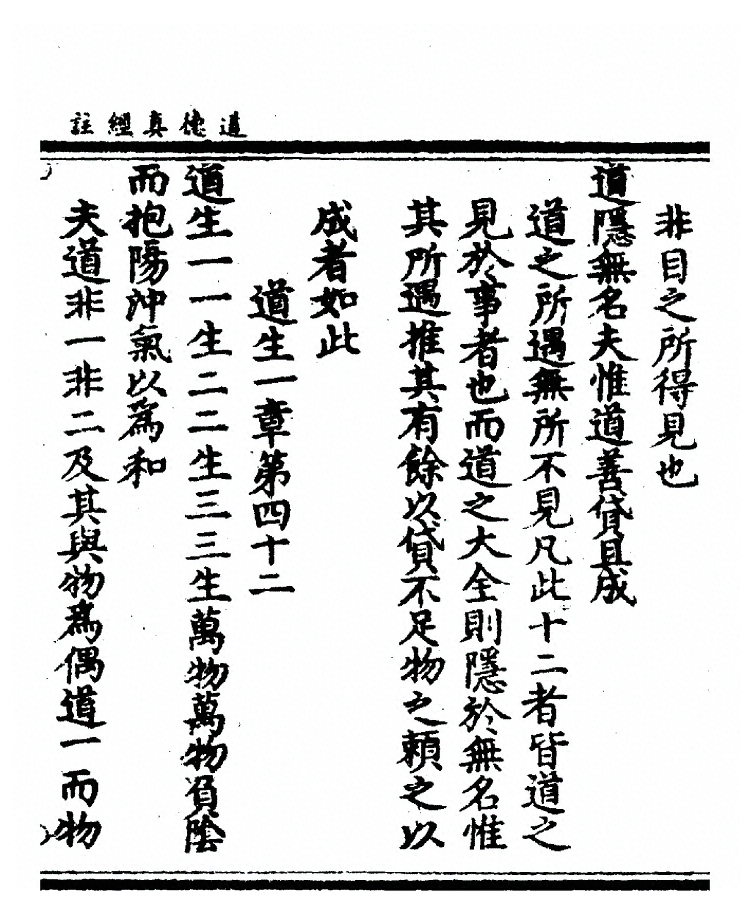 道德真經註
非目之所得見也
道隱無名夫惟道善貸且成
道之所遇無所不見凡此十二者皆道之
見於事者也而道之大全則隱於無名惟
其所遇推其有餘以貸不足物之賴之以
成者如此
道生一章第四十二
道生一一生二二生三三生萬物萬物負陰
而抱陽沖氣以為和
夫道非一非二及其與物為偶道一而物